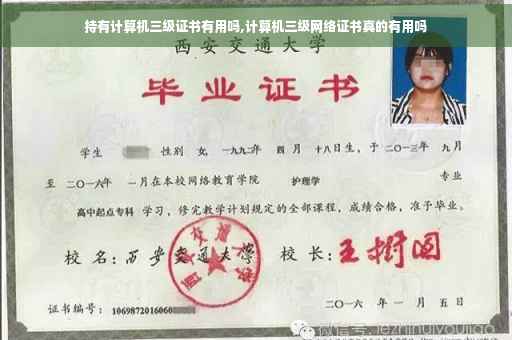 持有计算机三级证书有用吗,计算机三级网络证书真的有用吗
西安交通大学
毕业证书
学生 性别 女, 一九九二年 四月 十八日生，于 二〇一三年 九月
至 二〇一六年 一月在本校网络教育学院 护理学 专业
高中起点专科 学习，修完教学计划规定的全部课程，成绩合格，准予毕业。
校 名：西安交通大学 校 长：王树国
西安交通大学
证书编号：1069872016060
二〇一六 年 一 月 五 日
微信号: jiezhihuiyoujiao